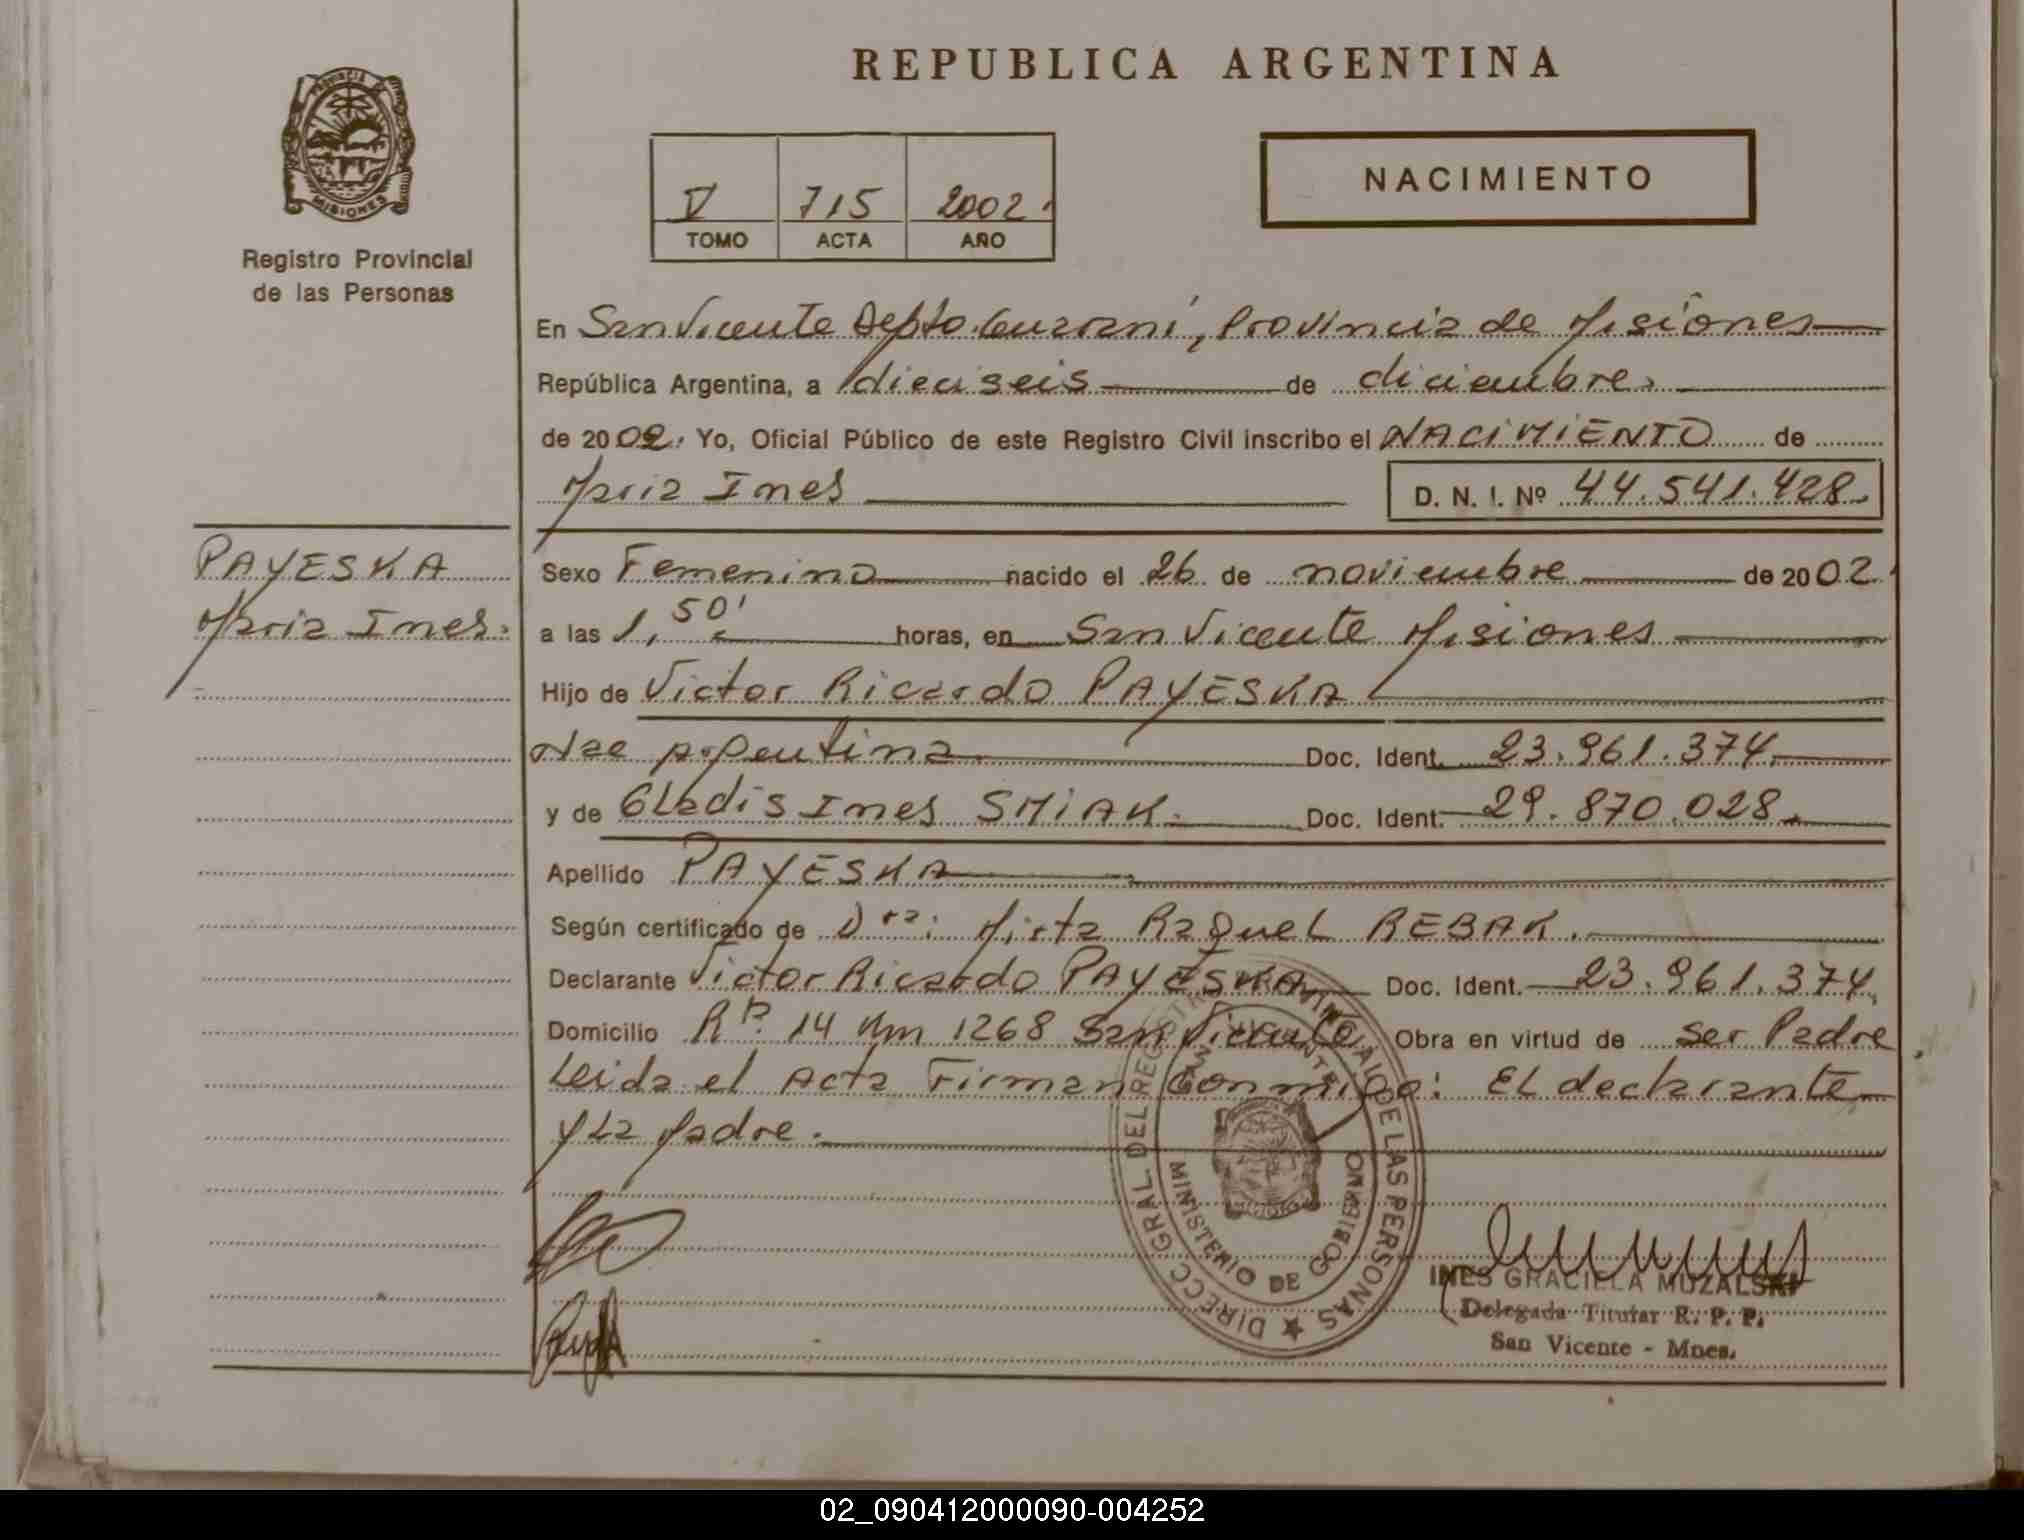 REPUBLICA ARGENTINA
PROVINCIA DE
MISIONES
Registro Provincial
de las Personas
V 715 2002.
TOMO ACTA AÑO
NACIMIENTO
En San Vicente Depto. Guaraní, Provincia de Misiones
República Argentina, a dieciseis de diciembre.
de 2002. Yo, Oficial Público de este Registro Civil inscribo el NACIMIENTO de
Maria Ines D. N. I. Nº 44.541.428.
PAYESKA
Maria Ines.
Sexo Femenino nacido el 26 de noviembre de 2002.
a las 1,50' horas, en San Vicente Misiones
Hijo de Victor Ricardo PAYESKA
Nac argentina Doc. Ident. 23.961.374.
y de GLadis Ines SMiAK. Doc. Ident. 29.870.028.
Apellido PAYESKA
Según certificado de Dra: Mirta RaqueL REBAK.
Declarante Victor Ricardo PAYESKA Doc. Ident. 23.961.374.
Domicilio Rta. 14 Km 1268 San Vicente Obra en virtud de ser Padre
Leida el Acta Firman Conmigo: EL declarante
y La Madre.
DIRECC. GRAL DEL REGISTRO PROVINCIAL DE LAS PERSONAS
SAN VICENTE
MINISTERIO DE GOBIERNO
INES GRACIELA MUZALSKI
Delegada Titular R. P. P.
San Vicente - Mnes.
02_090412000090-004252